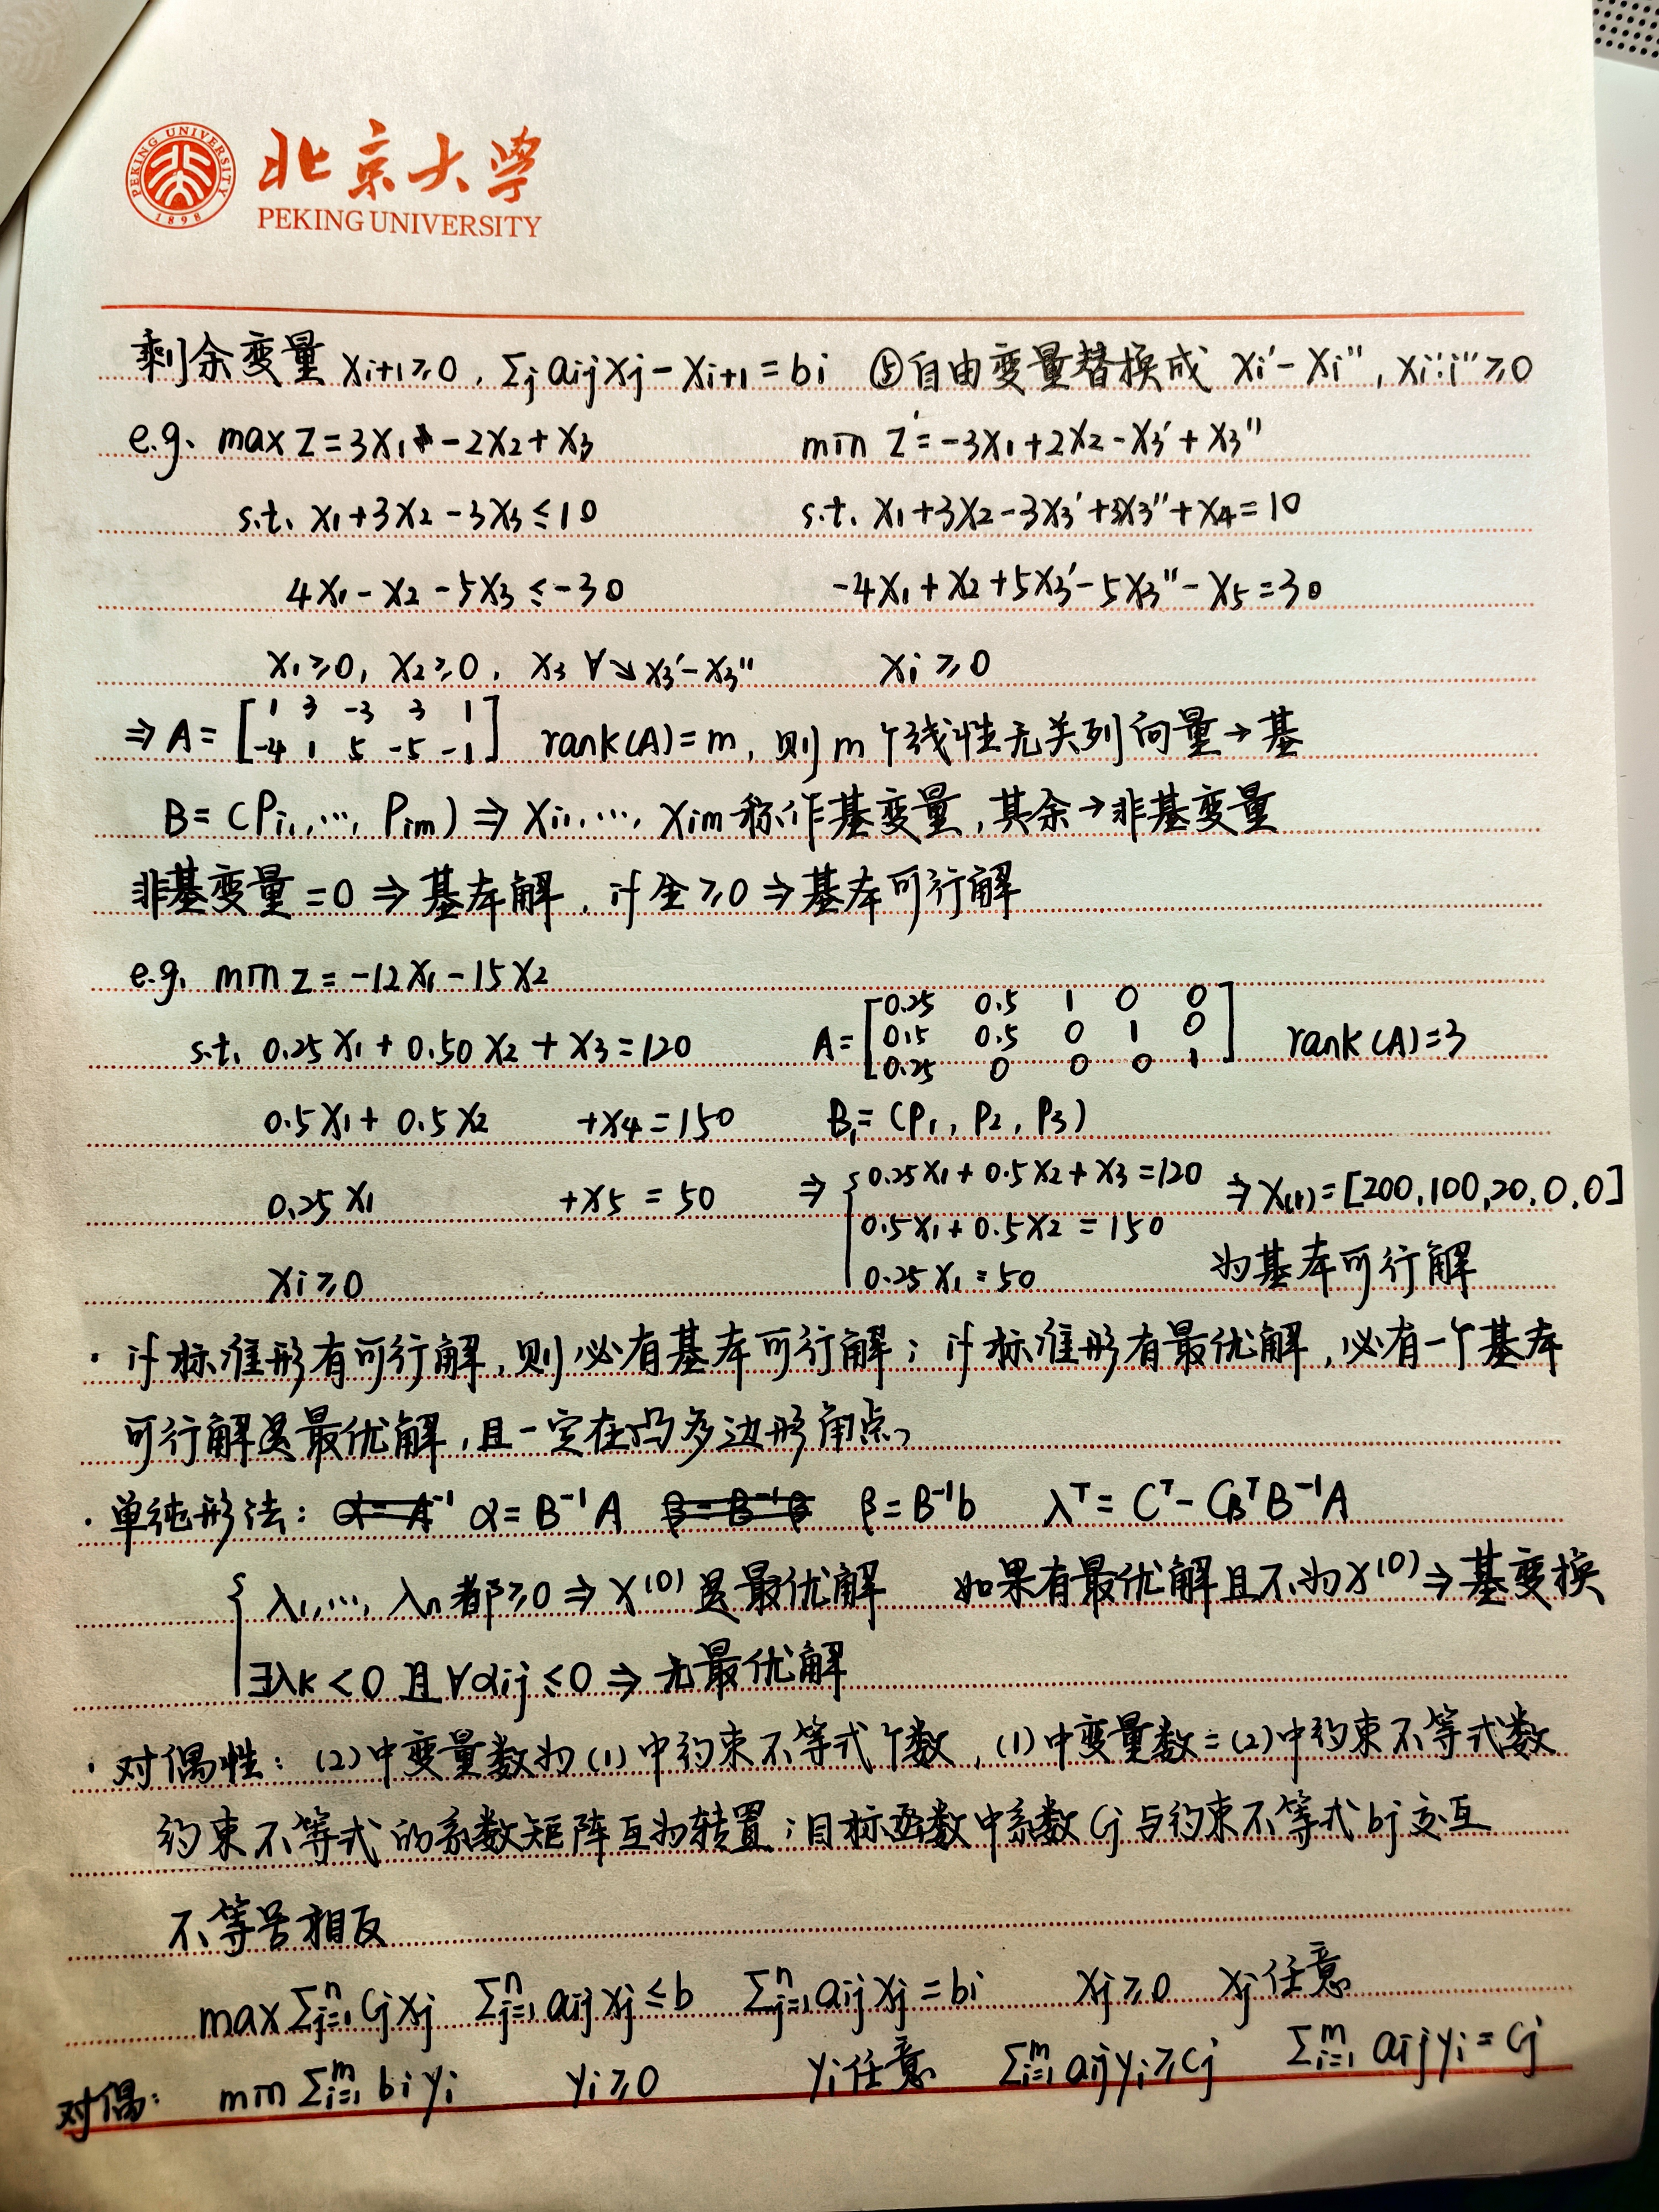 北京大学
PEKING UNIVERSITY
PEKING UNIVERSITY 1898
剩余变量 xi+1≥0, Σj aij xj - xi+1 = bi ⑤自由变量替换成 xi' - xi'', xi', i''≥0
e.g. max z = 3x1 - 2x2 + x3 min z' = -3x1 + 2x2 - x3' + x3''
s.t. x1 + 3x2 - 3x3 ≤ 10 s.t. x1 + 3x2 - 3x3' + 3x3'' + x4 = 10
4x1 - x2 - 5x3 ≤ -30 -4x1 + x2 + 5x3' - 5x3'' - x5 = 30
x1≥0, x2≥0, x3 ∀ ↘ x3' - x3'' xi ≥ 0
⇒ A = [1 3 -3 3 1; -4 1 5 -5 -1] rank(A) = m, 则 m 个线性无关列向量 → 基
B = (Pi1, ..., Pim) ⇒ xi1, ..., xim 称作基变量, 其余 → 非基变量
非基变量 = 0 ⇒ 基本解, if 全≥0 ⇒ 基本可行解
e.g. min z = -12x1 - 15x2
s.t. 0.25x1 + 0.50x2 + x3 = 120 A = [0.25 0.5 1 0 0; 0.5 0.5 0 1 0; 0.25 0 0 0 1] rank(A) = 3
0.5x1 + 0.5x2 + x4 = 150 B1 = (P1, P2, P3)
0.25x1 + x5 = 50 ⇒ { 0.25x1 + 0.5x2 + x3 = 120 ⇒ x(1) = [200, 100, 20, 0, 0]
0.5x1 + 0.5x2 = 150
xi ≥ 0 0.25x1 = 50 为基本可行解
· if 标准形有可行解, 则必有基本可行解; if 标准形有最优解, 必有一个基本
可行解是最优解, 且一定在凸多边形角点。
· 单纯形法: α = A⁻¹ α = B⁻¹A β = B⁻¹β β = B⁻¹b λᵀ = Cᵀ - CBᵀB⁻¹A
{ λ1, ..., λn 都≥0 ⇒ x⁽⁰⁾ 是最优解 如果有最优解且不为 x⁽⁰⁾ ⇒ 基变换
∃λk < 0 且 ∀αij ≤ 0 ⇒ 无最优解
· 对偶性: (2)中变量数为(1)中约束不等式个数, (1)中变量数 = (2)中约束不等式数
约束不等式的系数矩阵互为转置; 目标函数中系数 Cj 与约束不等式 bj 交互
不等号相反
max Σⁿj=1 Cj xj Σⁿj=1 aij xj ≤ b Σⁿj=1 aij xj = bi xj ≥ 0 xj 任意
对偶: min Σᵐi=1 bi yi yi ≥ 0 yi 任意 Σᵐi=1 aij yi ≥ Cj Σᵐi=1 aij yi = Cj